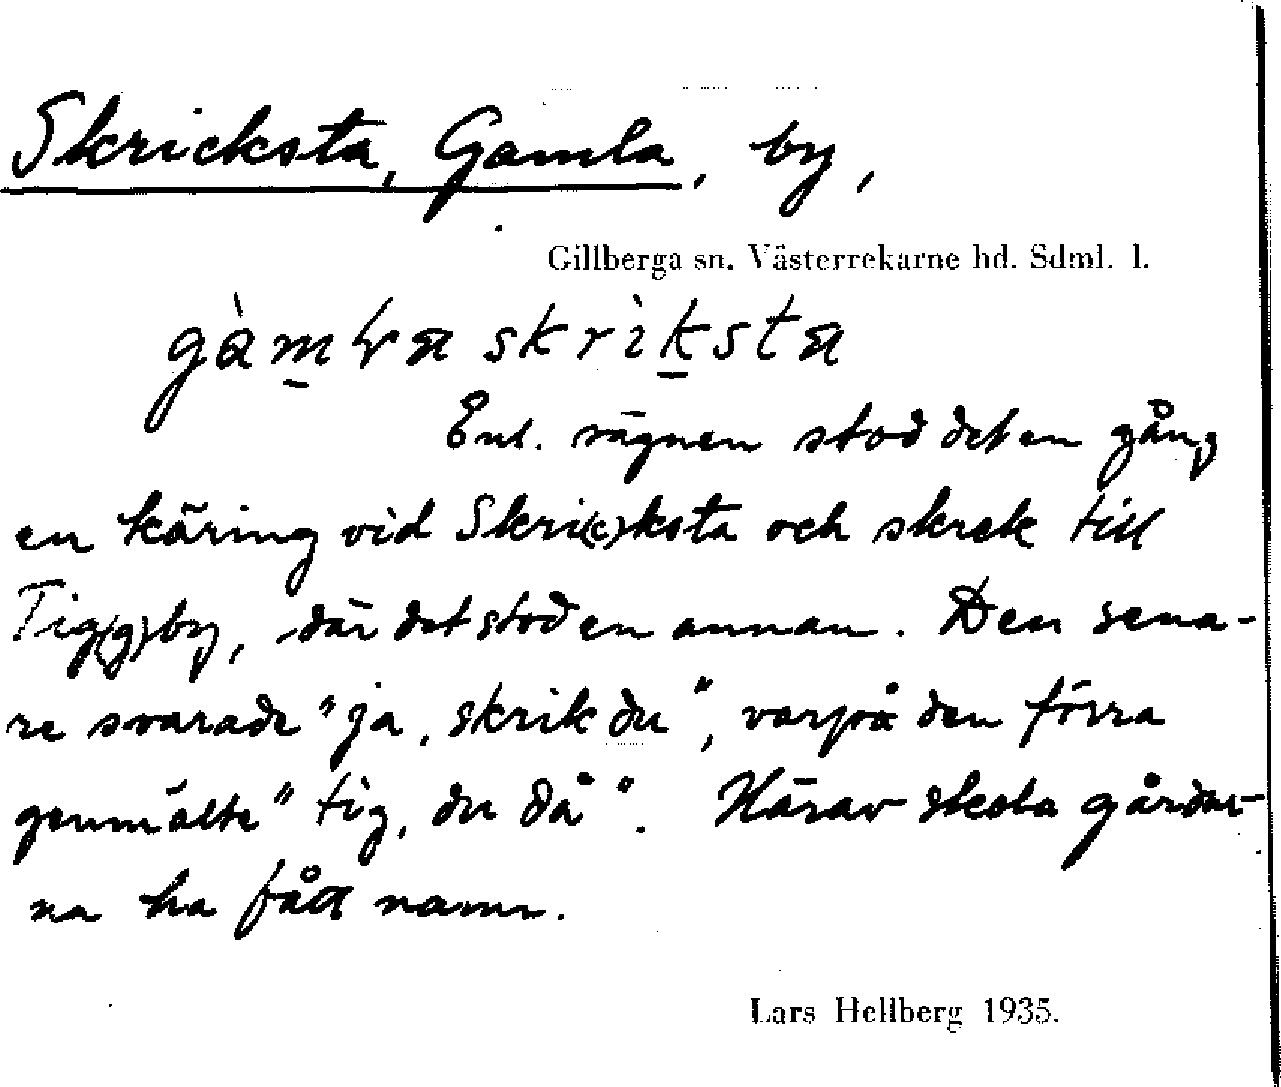 Skricksta, Gamla, by,
Gillberga sn. Västerrekarne hd. Sdml. l.
skriksta
Enl. sägnen stod det en gång
en käring vid Skri(c)ksta och skrek till
Tig(g)by, där det stod en annan. Den sena-
re svarade "ja, skrik du", varpå den förra
genmälte "tig, du då". Härav skola gårdar-
na ha fått namn.
Lars Hellberg 1935.